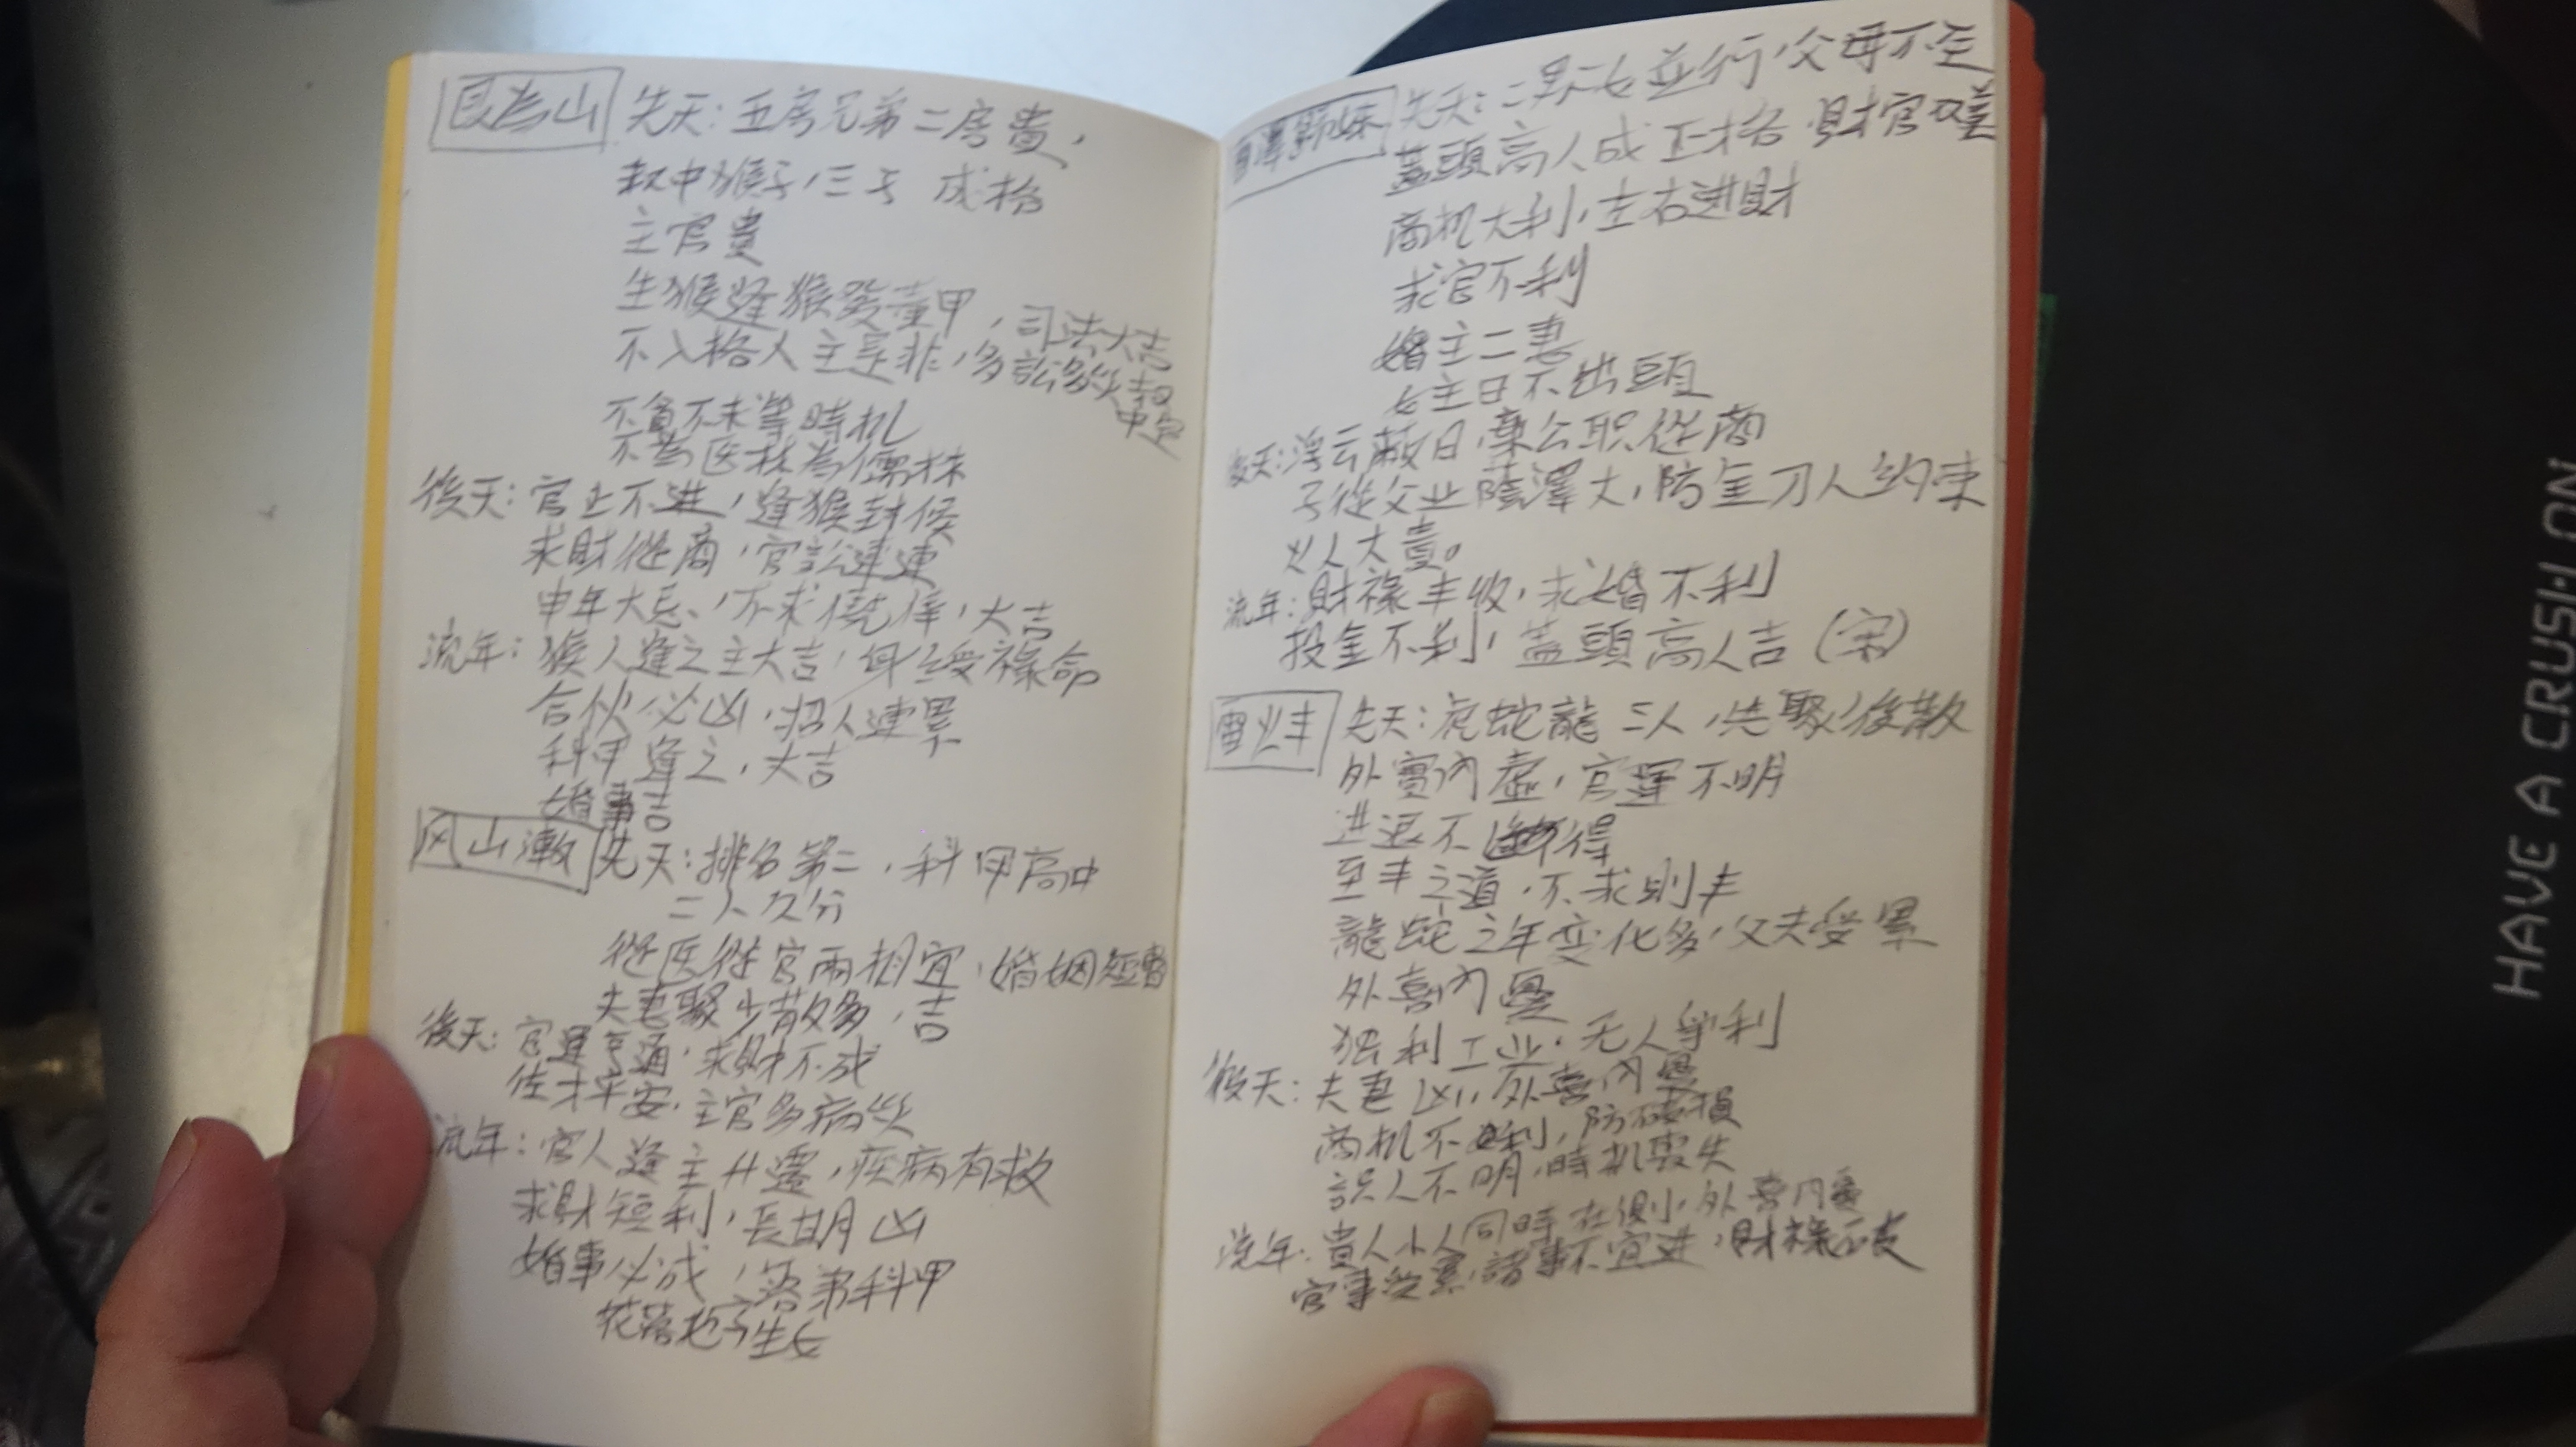 艮為山 先天：五房兄弟二房貴，
猴子，三子 成格
主官貴
生猴逢猴發臺甲，司法大吉
不入格人主是非，多訟多災
不負不求等時机
不為医林為儒林
後天：官止不进，逢猴封候
求財從商，官訟連連
申年大忌，不求僥倖，大吉
流年：猴人逢之主大吉，身綬禄命
合伙必凶，招人連累
科甲逢之，大吉
婚事吉
风山漸 先天：排名第二，科甲高中
二人久分
從医從官兩相宜，婚姻短暫
夫妻聚少散多，吉
後天：官運亨通，求財不成
佐才平安，主官多病災
流年：官人逢主升遷，疾病有救
求財短利，長期凶
婚事必成，等弟科甲
花落地生女
雷澤歸妹 先天：二男二女並行，父母不全
蓋頭高人成正格，財官双美
商机大利，左右进財
求官不利
婚主二妻
女主日不出頭
後天：浮云蔽日，棄公职從商
子從父业蔭澤大，防金刀人約束
火人大喜。
流年：財禄丰收，求婚不利
投金不利，蓋頭高人吉（宋）
雷火丰 先天：虎蛇龍三人，先聚後散
外實內虛，官運不明
进退不得
至丰之道，不求則丰
龍蛇之年变化多，父夫受累
外喜內憂
独利工业，无人争利
後天：夫妻凶，外喜內憂
商机不利，防破損
識人不明，時机喪失
流年：貴人小人同時在側，外喜內憂
官事受累，諸事不宜进，財禄不喪
HAVE A CRUSH ON